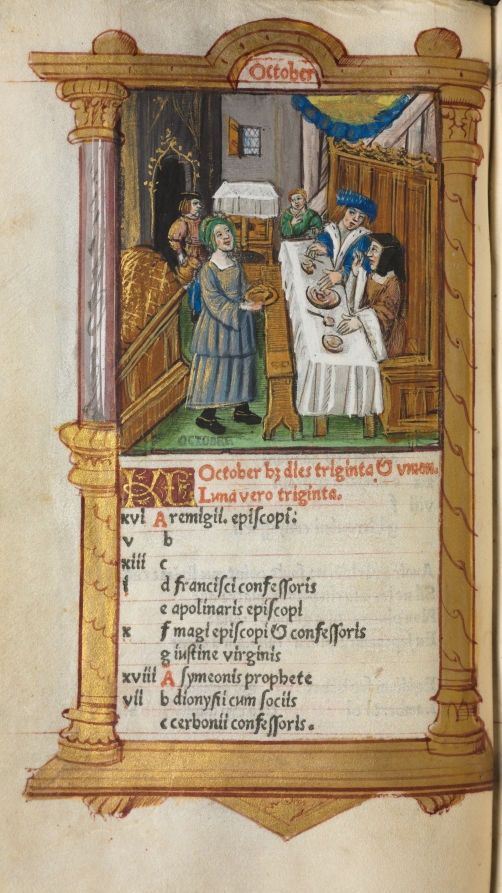 October
OCTOBRR
KL October hʒ dies triginta & vnum.
Luna vero triginta.
xvi A remigii. episcopi:
v b
xiii c
i d francisci confessoris
e apolinaris episcopi
x f magi episcopi & confessoris
g iustine virginis
xviii A symeonis prophete
vii b dionysii cum sociis
c cerbonii confessoris.